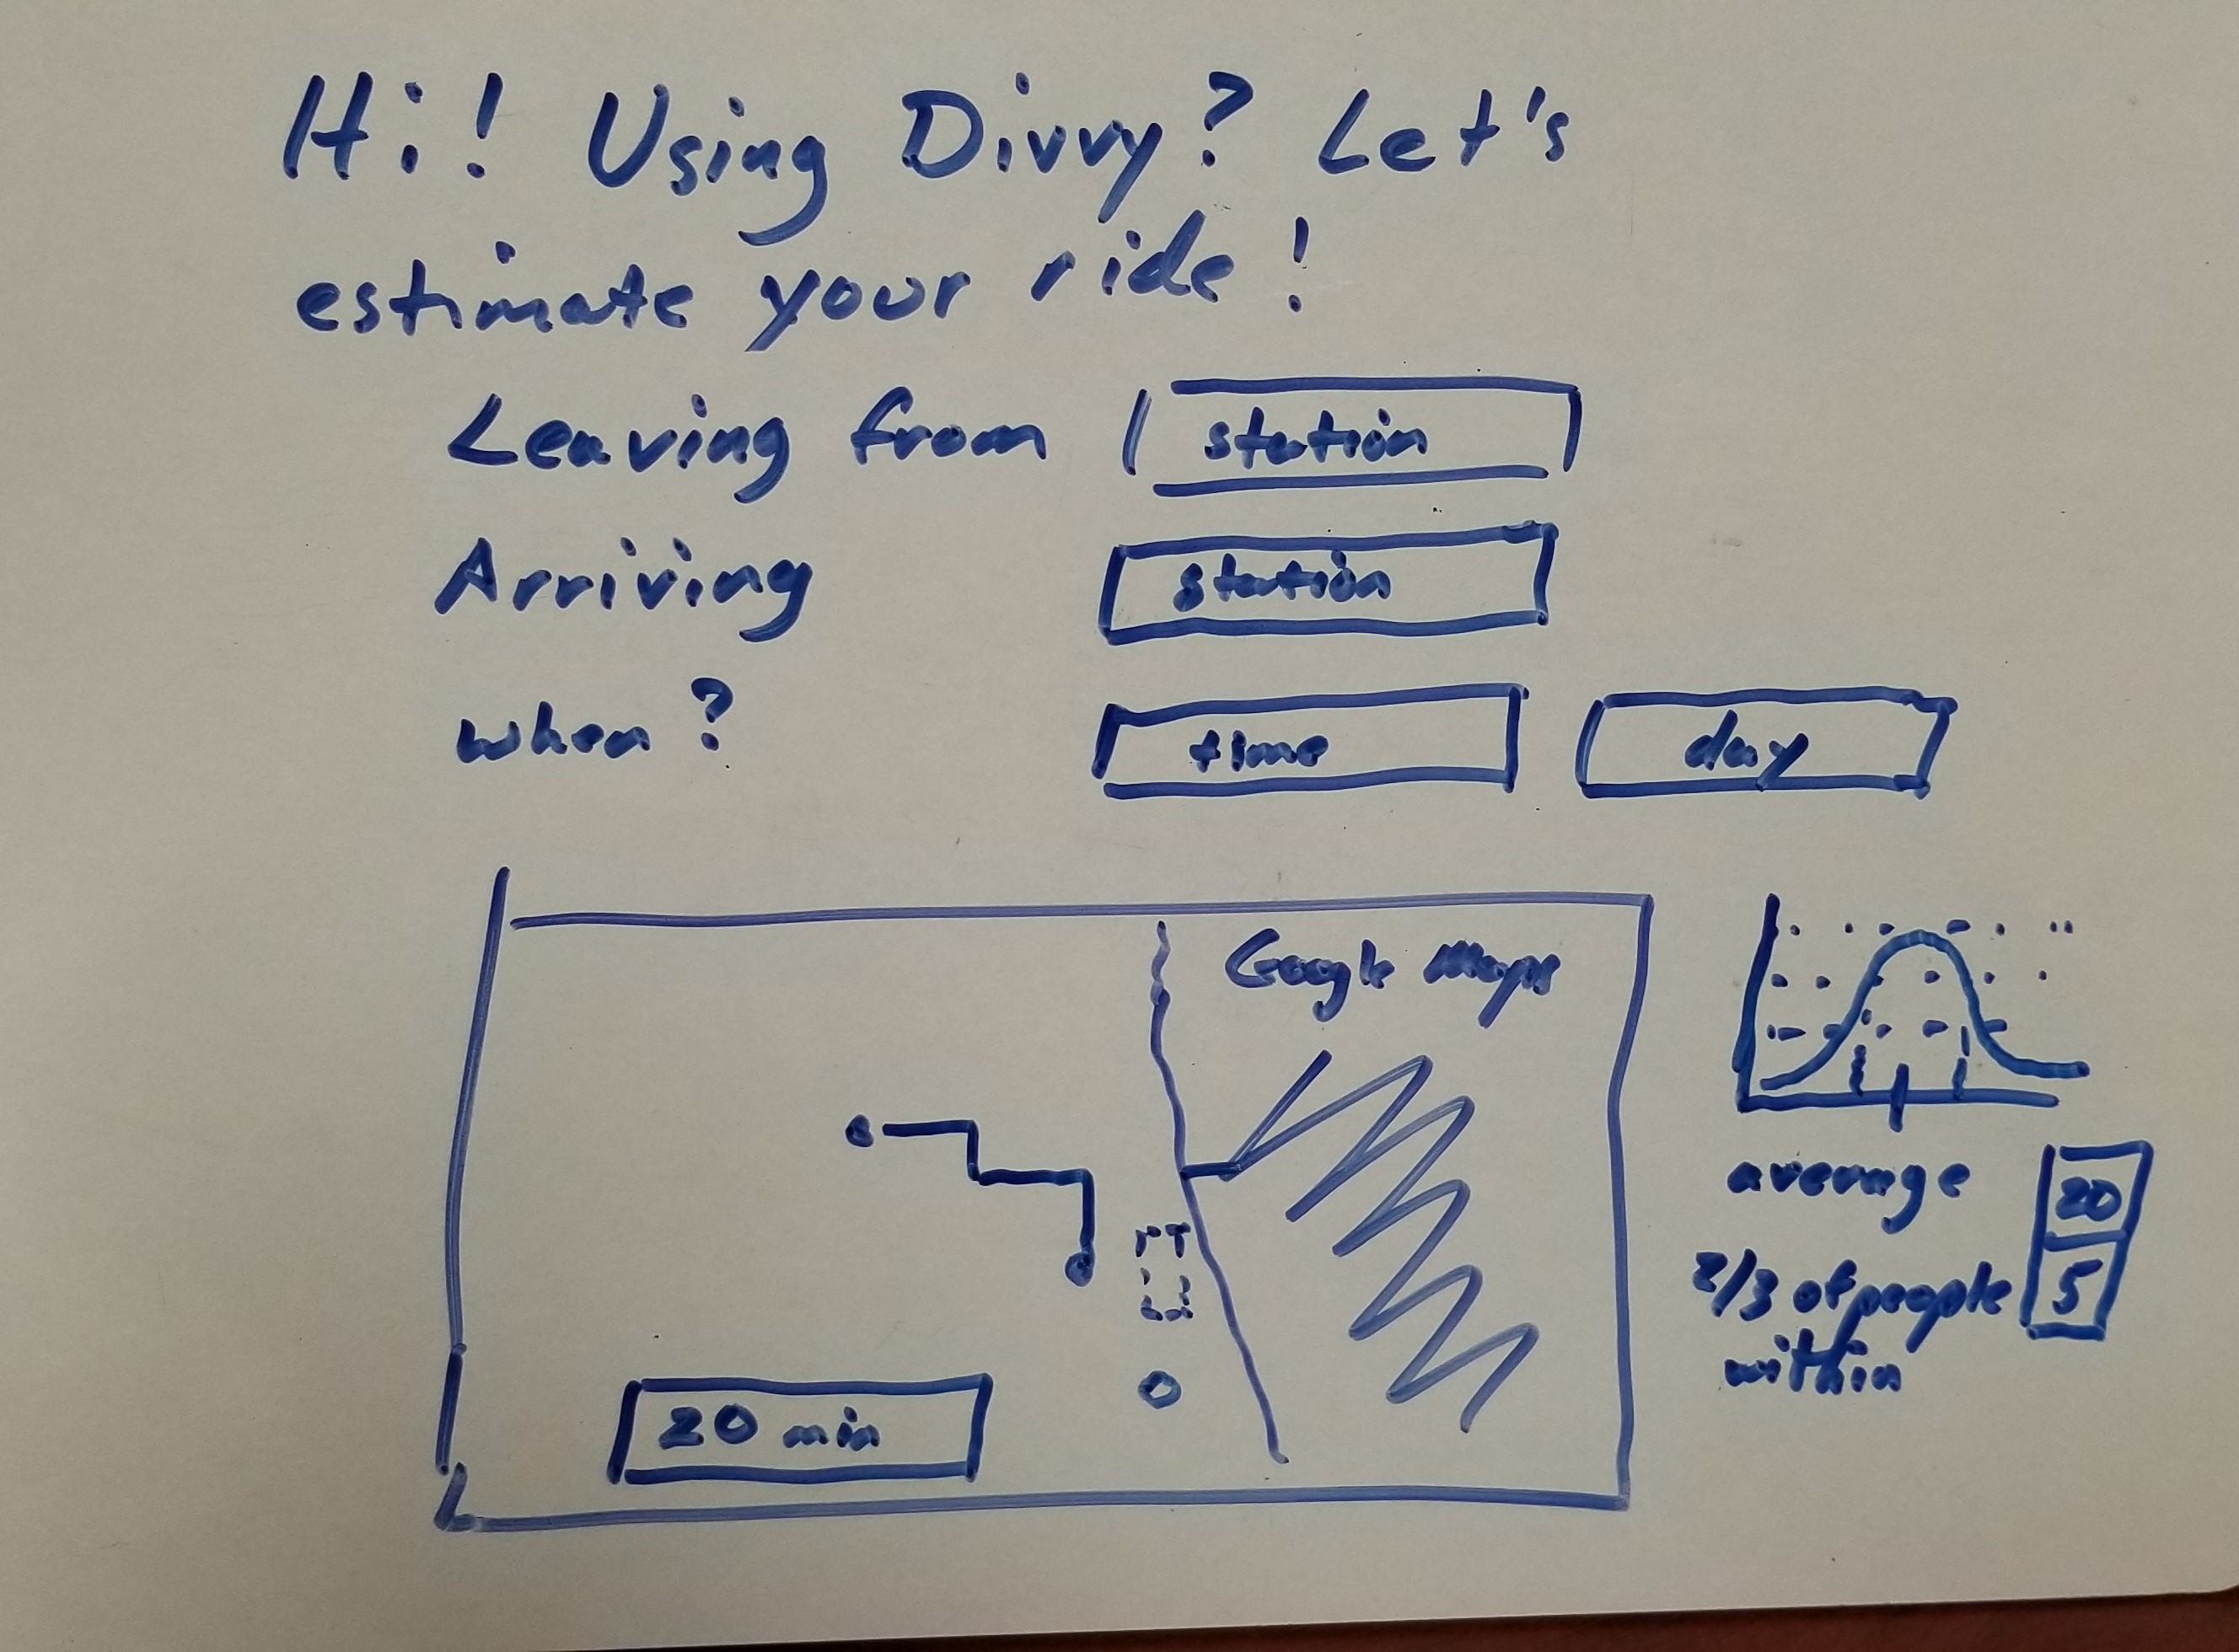 Hi! Using Divvy? Let's
estimate your ride!
Leaving from station
Arriving station
when? time day
Google Maps
20 min
average 20
2/3 of people 5
within